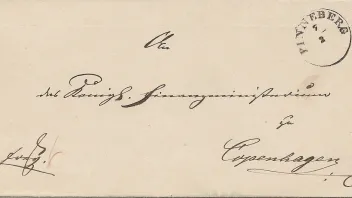 PINNEBERG
7/2
An
das Königl. Finanzministerium
zu
Copenhagen